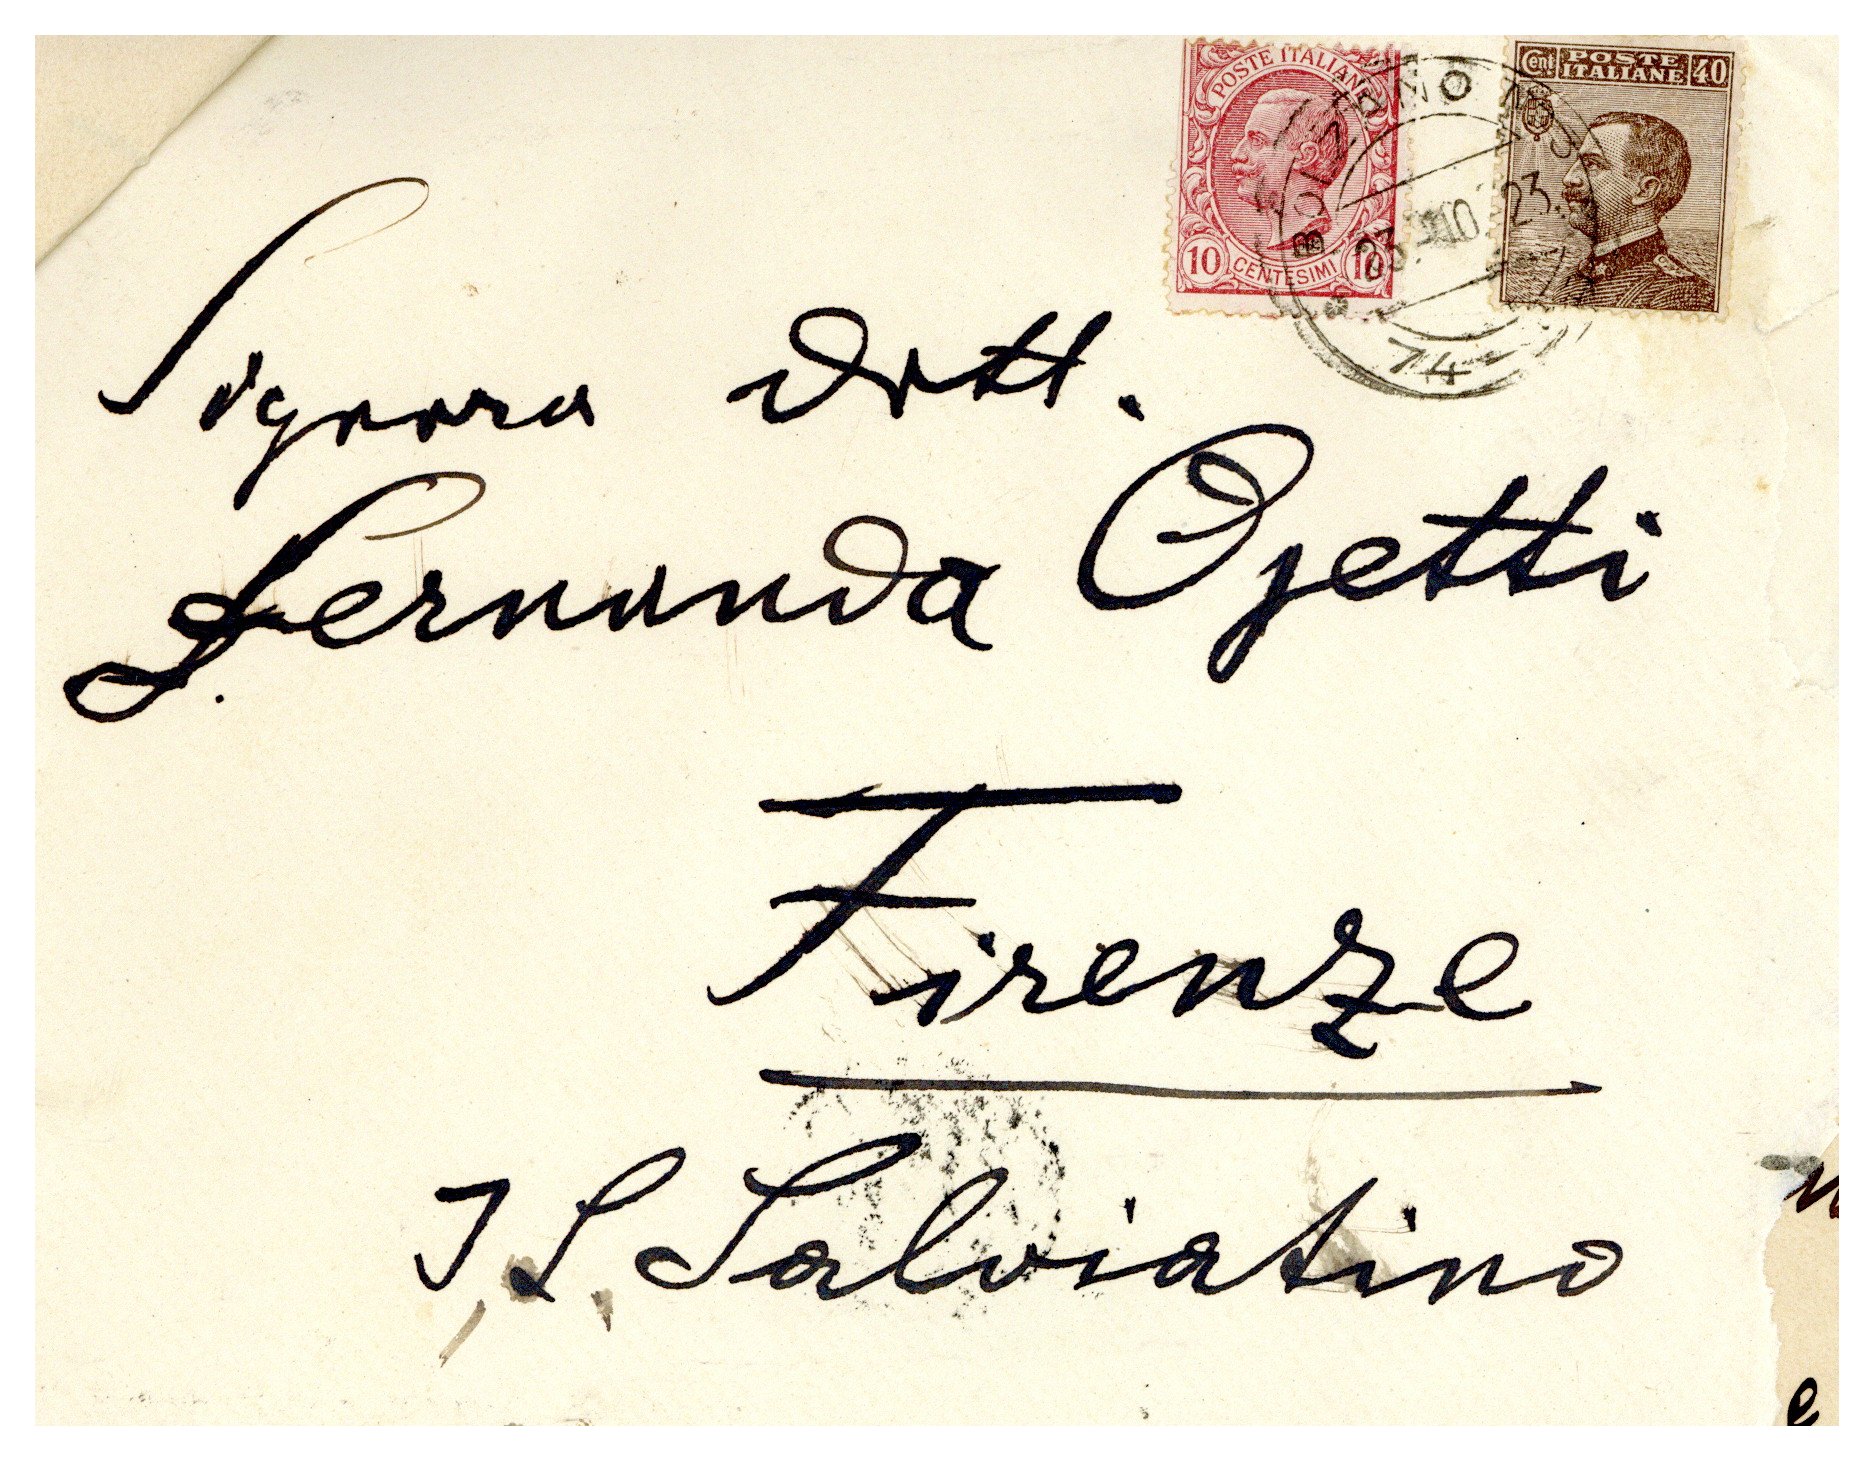 POSTE ITALIANE
10 CENTESIMI 10
Cent POSTE ITALIANE 40
23. 10 23.
74
Signora Dott.
Fernanda Ojetti
Firenze
Il Salviatino
e